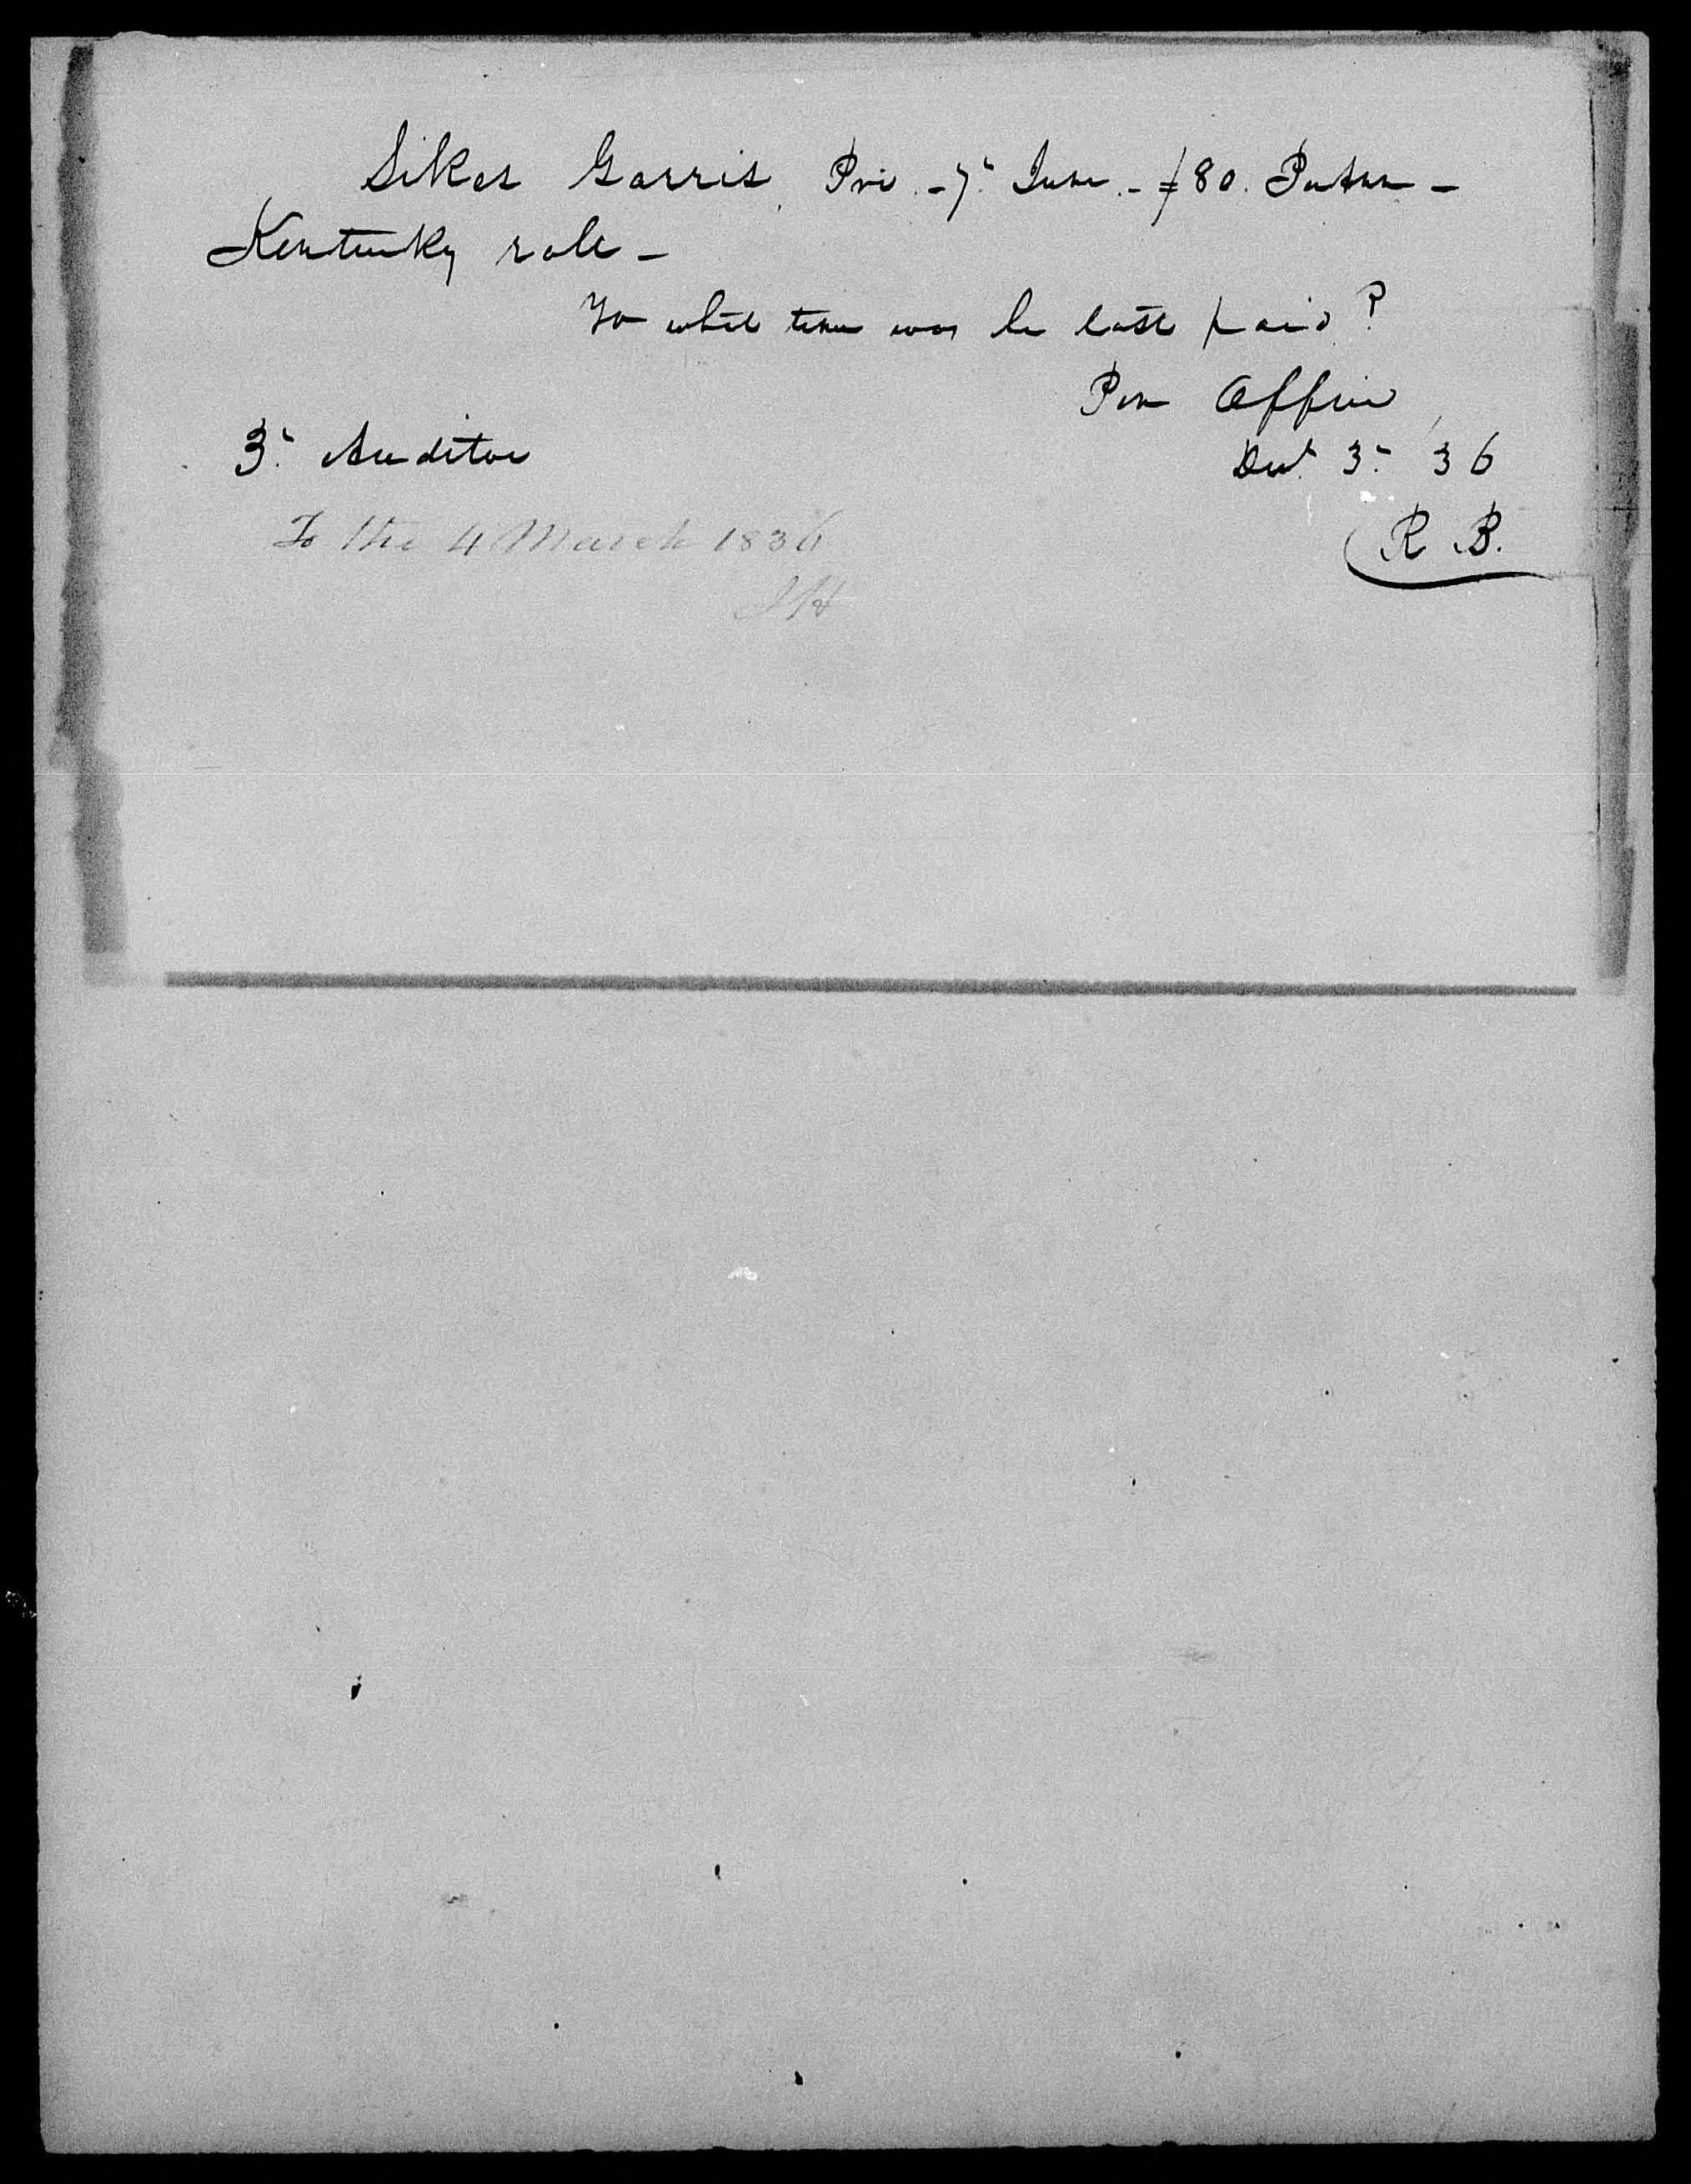 Sikes Garris, Pri. - 7th June. - $80. Pr Ann -
Kentucky roll -
To what time was he last paid?
Pen Office
3d Auditor
Dec 3d '36
R. B.
To the 4 March 1836